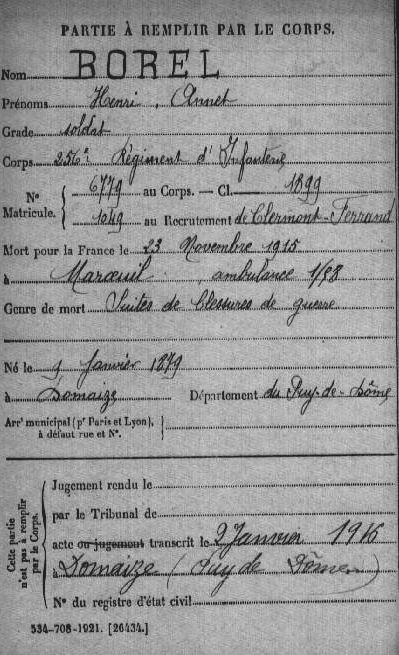 PARTIE À REMPLIR PAR LE CORPS.
Nom BOREL
Prénoms Henri, Annet
Grade soldat
Corps 256e Régiment d'Infanterie
N° Matricule. 6779 au Corps. — Cl. 1899
1049 au Recrutement de Clermont-Ferrand
Mort pour la France le 23 Novembre 1915
à Maroeuil ambulance 1/58
Genre de mort Suites de blessures de guerre
Né le Janvier 1879
à Domaize Département du Puy-de-Dôme
Arrt municipal (pr Paris et Lyon), à défaut rue et N°.
Cette partie n'est pas à remplir par le Corps.
Jugement rendu le
par le Tribunal de
acte ou jugement transcrit le 2 Janvier 1916
à Domaize (Puy de Dôme)
N° du registre d'état civil
534-708-1921. [26434.]